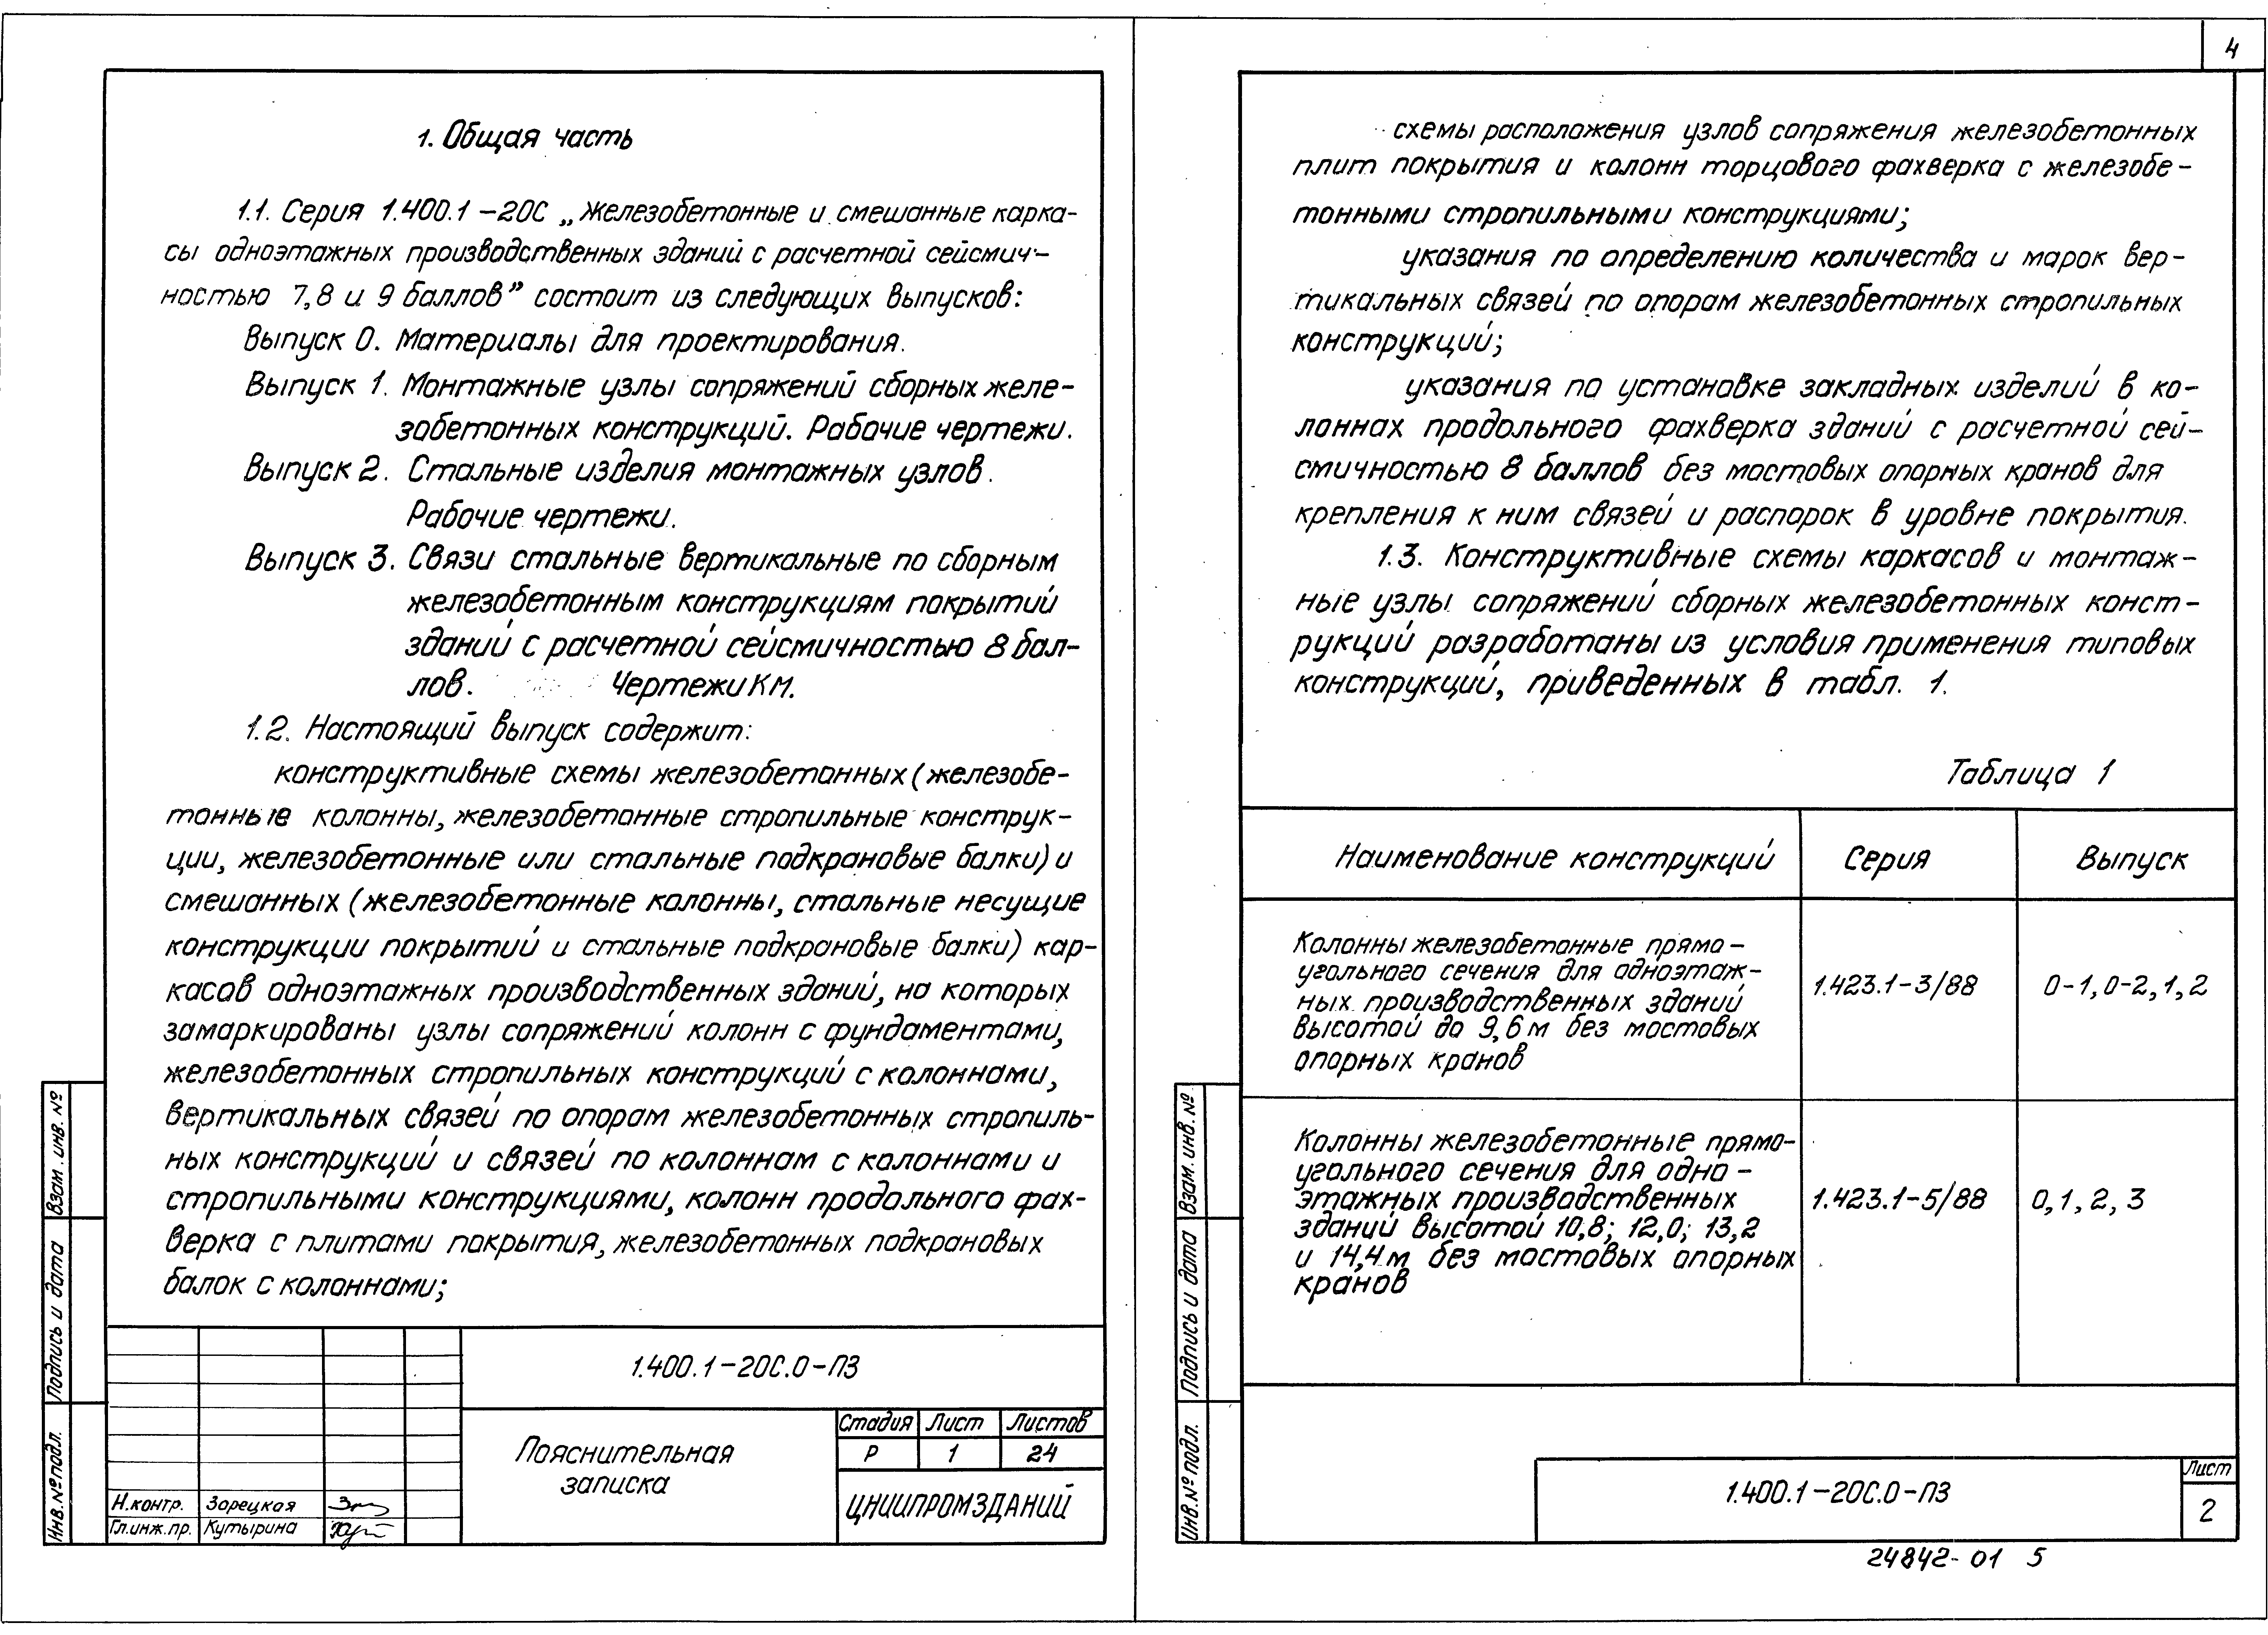 1. Общая часть
1.1. Серия 1.400.1-20С „Железобетонные и смешанные карка-
сы одноэтажных производственных зданий с расчетной сейсмич-
ностью 7,8 и 9 баллов” состоит из следующих выпусков:
Выпуск 0. Материалы для проектирования.
Выпуск 1. Монтажные узлы сопряжений сборных желе-
зобетонных конструкций. Рабочие чертежи.
Выпуск 2. Стальные изделия монтажных узлов.
Рабочие чертежи.
Выпуск 3. Связи стальные вертикальные по сборным
железобетонным конструкциям покрытий
зданий с расчетной сейсмичностью 8 бал-
лов. Чертежи КМ.
1.2. Настоящий выпуск содержит:
конструктивные схемы железобетонных (железобе-
тонные колонны, железобетонные стропильные конструк-
ции, железобетонные или стальные подкрановые балки) и
смешанных (железобетонные колонны, стальные несущие
конструкции покрытий и стальные подкрановые балки) кар-
касов одноэтажных производственных зданий, на которых
замаркированы узлы сопряжений колонн с фундаментами,
железобетонных стропильных конструкций с колоннами,
вертикальных связей по опорам железобетонных стропиль-
ных конструкций и связей по колоннам с колоннами и
стропильными конструкциями, колонн продольного фах-
верка с плитами покрытия, железобетонных подкрановых
балок с колоннами;
Взам. инв. №
Подпись и дата
Инв. № подл.
1.400.1-20С.0-ПЗ
Пояснительная
записка
Стадия Лист Листов
Р 1 24
ЦНИИПРОМЗДАНИЙ
Н.контр. Зарецкая
Гл.инж.пр. Кутырина
4
схемы расположения узлов сопряжения железобетонных
плит покрытия и колонн торцового фахверка с железобе-
тонными стропильными конструкциями;
указания по определению количества и марок вер-
тикальных связей по опорам железобетонных стропильных
конструкций;
указания по установке закладных изделий в ко-
лоннах продольного фахверка зданий с расчетной сей-
смичностью 8 баллов без мостовых опорных кранов для
крепления к ним связей и распорок в уровне покрытия.
1.3. Конструктивные схемы каркасов и монтаж-
ные узлы сопряжений сборных железобетонных конст-
рукций разработаны из условия применения типовых
конструкций, приведенных в табл. 1.
Таблица 1
Наименование конструкций Серия Выпуск
Колонны железобетонные прямо-
угольного сечения для одноэтаж-
ных производственных зданий
высотой до 9,6 м без мостовых
опорных кранов
1.423.1-3/88 0-1, 0-2, 1, 2
Колонны железобетонные прямо-
угольного сечения для одно-
этажных производственных
зданий высотой 10,8; 12,0; 13,2
и 14,4 м без мостовых опорных
кранов
1.423.1-5/88 0, 1, 2, 3
Взам. инв. №
Подпись и дата
Инв. № подл.
1.400.1-20С.0-ПЗ
Лист
2
24842-01 5